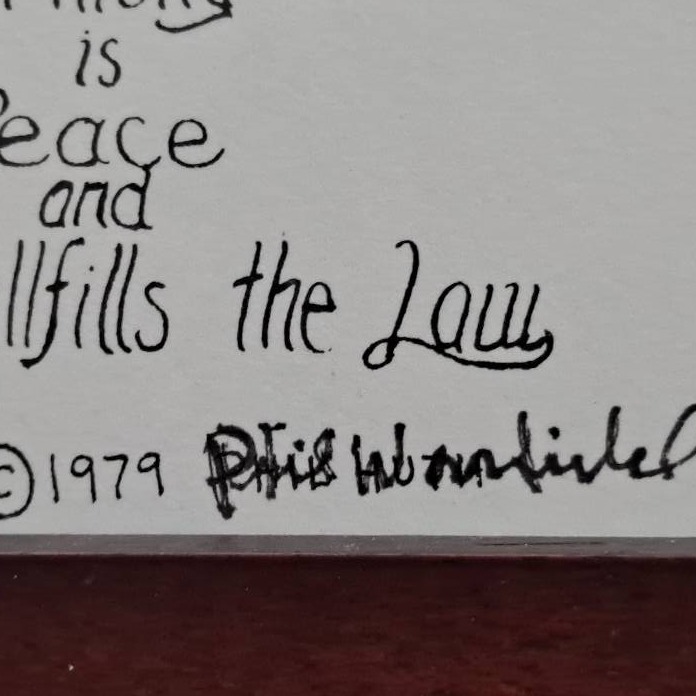 is
Peace
and
llfills the Law
©1979 Phil